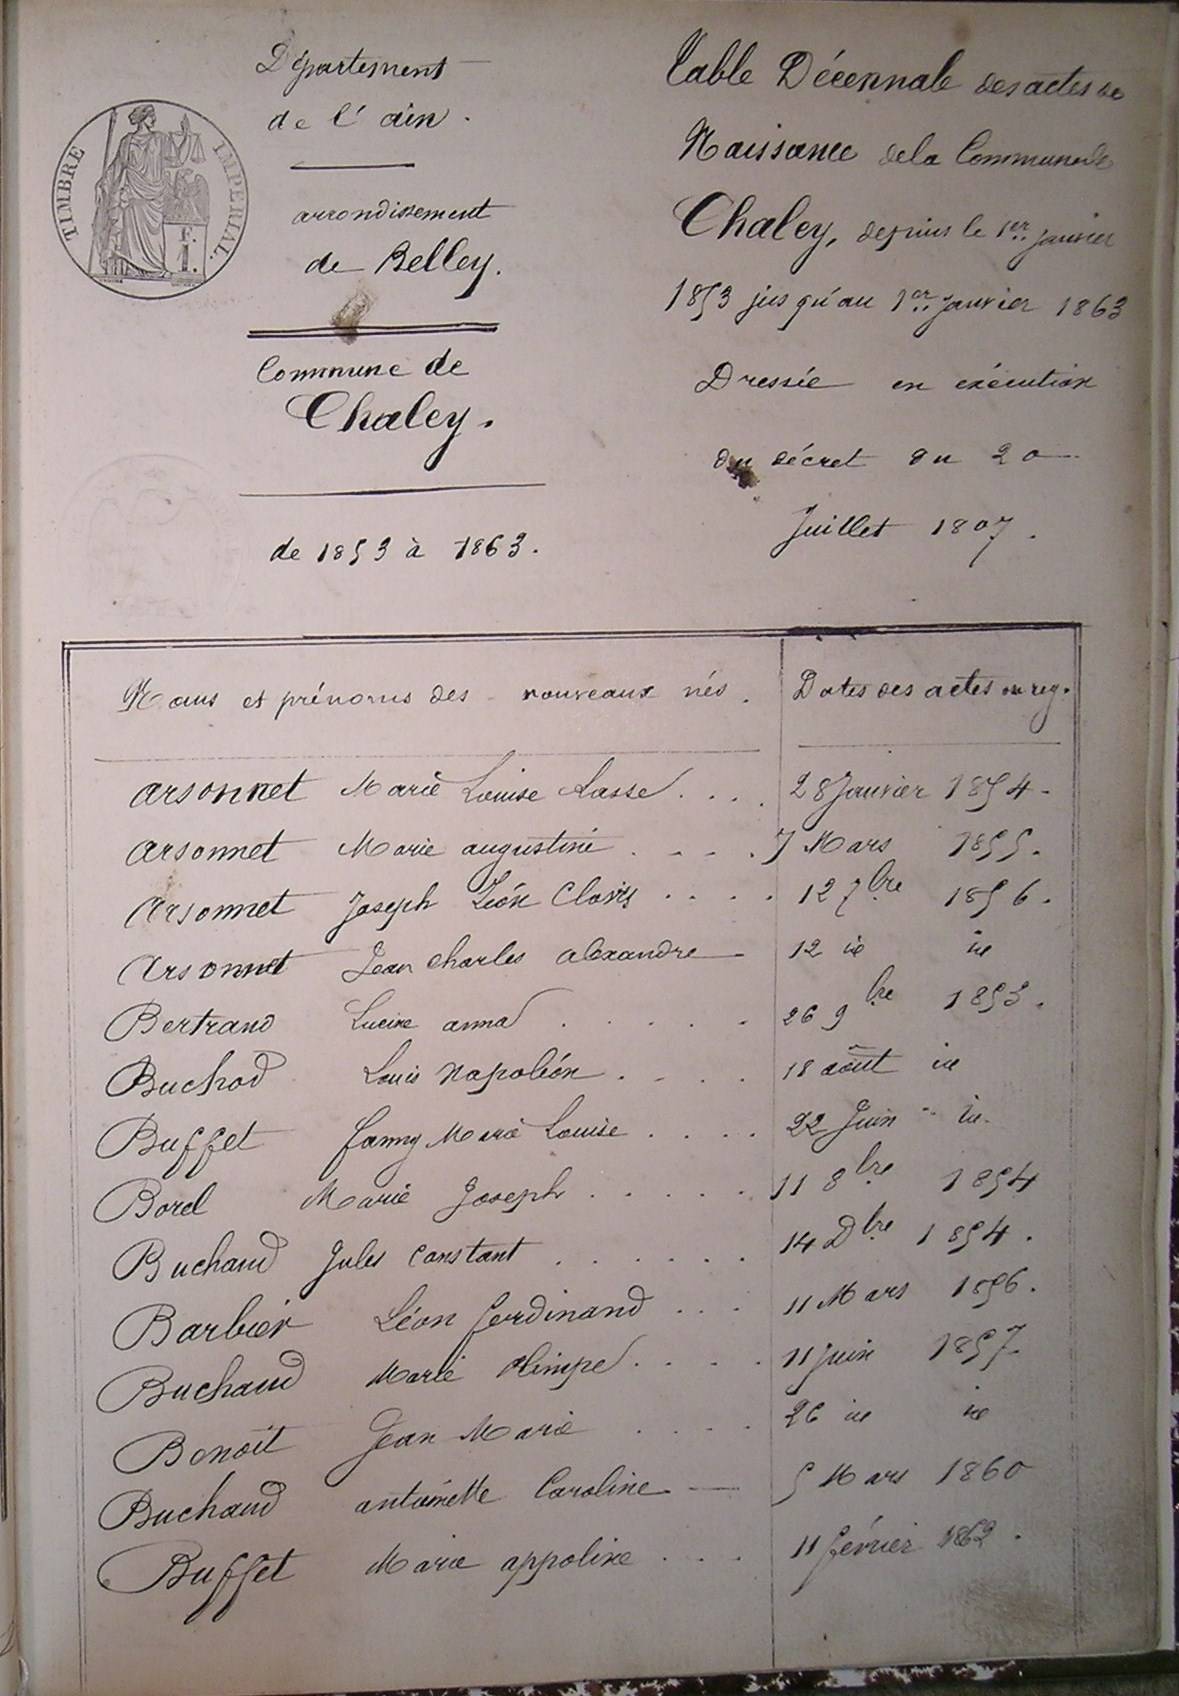 Département
de l'ain.
TIMBRE IMPERIAL.
F.
I.
arrondissement
de Belley.
Commune de
Chaley.
de 1853 à 1863.
Table Décennale des actes de
Naissance de la Commune de
Chaley, depuis le 1er janvier
1853 jusqu'au 1er janvier 1863
Dressée en exécution
du décret du 20
Juillet 1807.
Noms et prénoms des nouveaux nés. Dates des actes ou reg.
arsonnet Marie Louise . . . . 28 Janvier 1854.
arsonnet Marie augustine . . . . 7 Mars 1855.
Arsonnet Joseph Léon Clovis . . . . 12 7bre 1856.
Arsonnet Jean Charles alexandre 12 id id
Bertrand Lucine anna . . . . . 26 9bre 1853.
Buchod Louis Napoléon . . . . 18 août id
Buffet fanny Marie Louise . . . . 22 Juin id.
Borel Marie Joseph . . . . . 11 8bre 1854
Buchaud Jules Constant . . . . . . 14 Dbre 1854.
Barbier Léon ferdinand . . . 11 Mars 1856.
Buchaud Marie Olimpe . . . . 11 juin 1857.
Benoit Jean Marie . . . . 26 id id
Buchaud antoinette Caroline — 5 Mars 1860
Buffet Marie appoline . . . 11 février 1862.